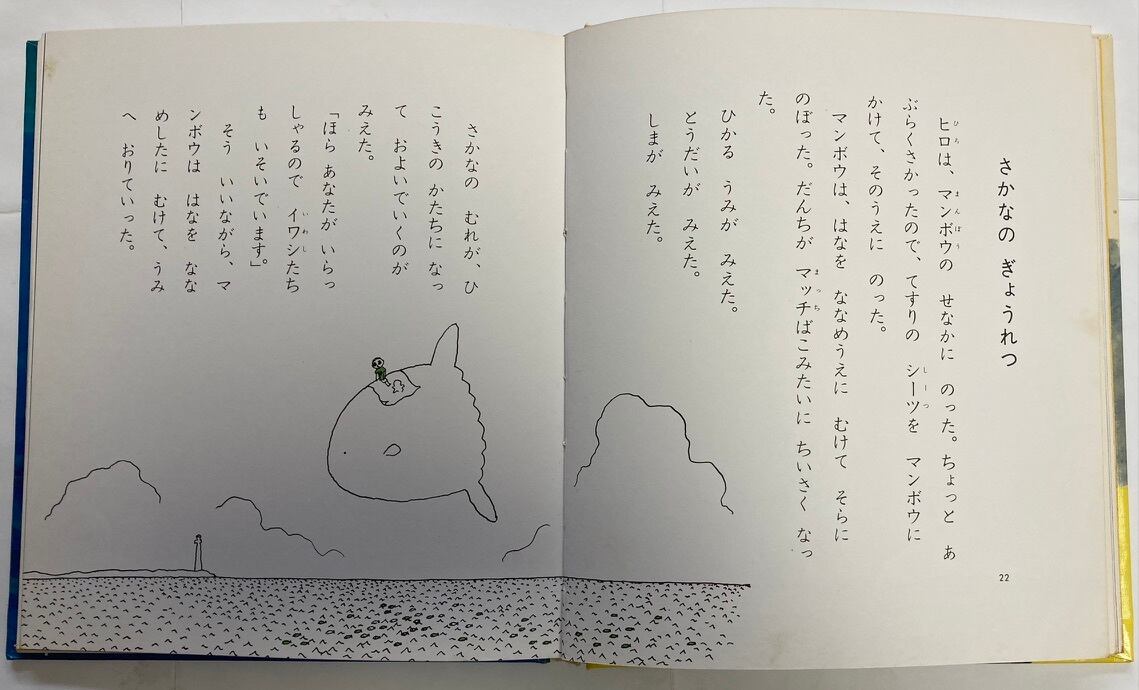 さかなの ぎょうれつ
ヒロは、マンボウの せなかに のった。ちょっと あ
ぶらくさかったので、てすりの シーツを マンボウに
かけて、そのうえに のった。
マンボウは、はなを ななめうえに むけて そらに
のぼった。だんちが マッチばこみたいに ちいさく なっ
た。
ひかる うみが みえた。
とうだいが みえた。
しまが みえた。
22
さかなの むれが、ひ
こうきの かたちに なっ
て およいでいくのが
みえた。
「ほら あなたが いらっ
しゃるので イワシたち
も いそいでいます。」
そう いいながら、マ
ンボウは はなを なな
めしたに むけて、うみ
へ おりていった。